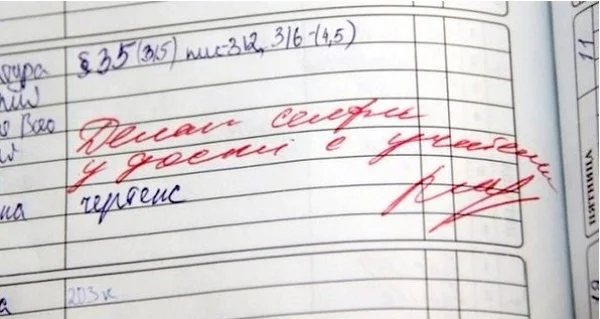 тура § 35 (3,5) пис-312, 316-(4,5)
Делал селфи
у доски с учителем
на чертеж
а 203 к
11
ПЯТНИЦА
12